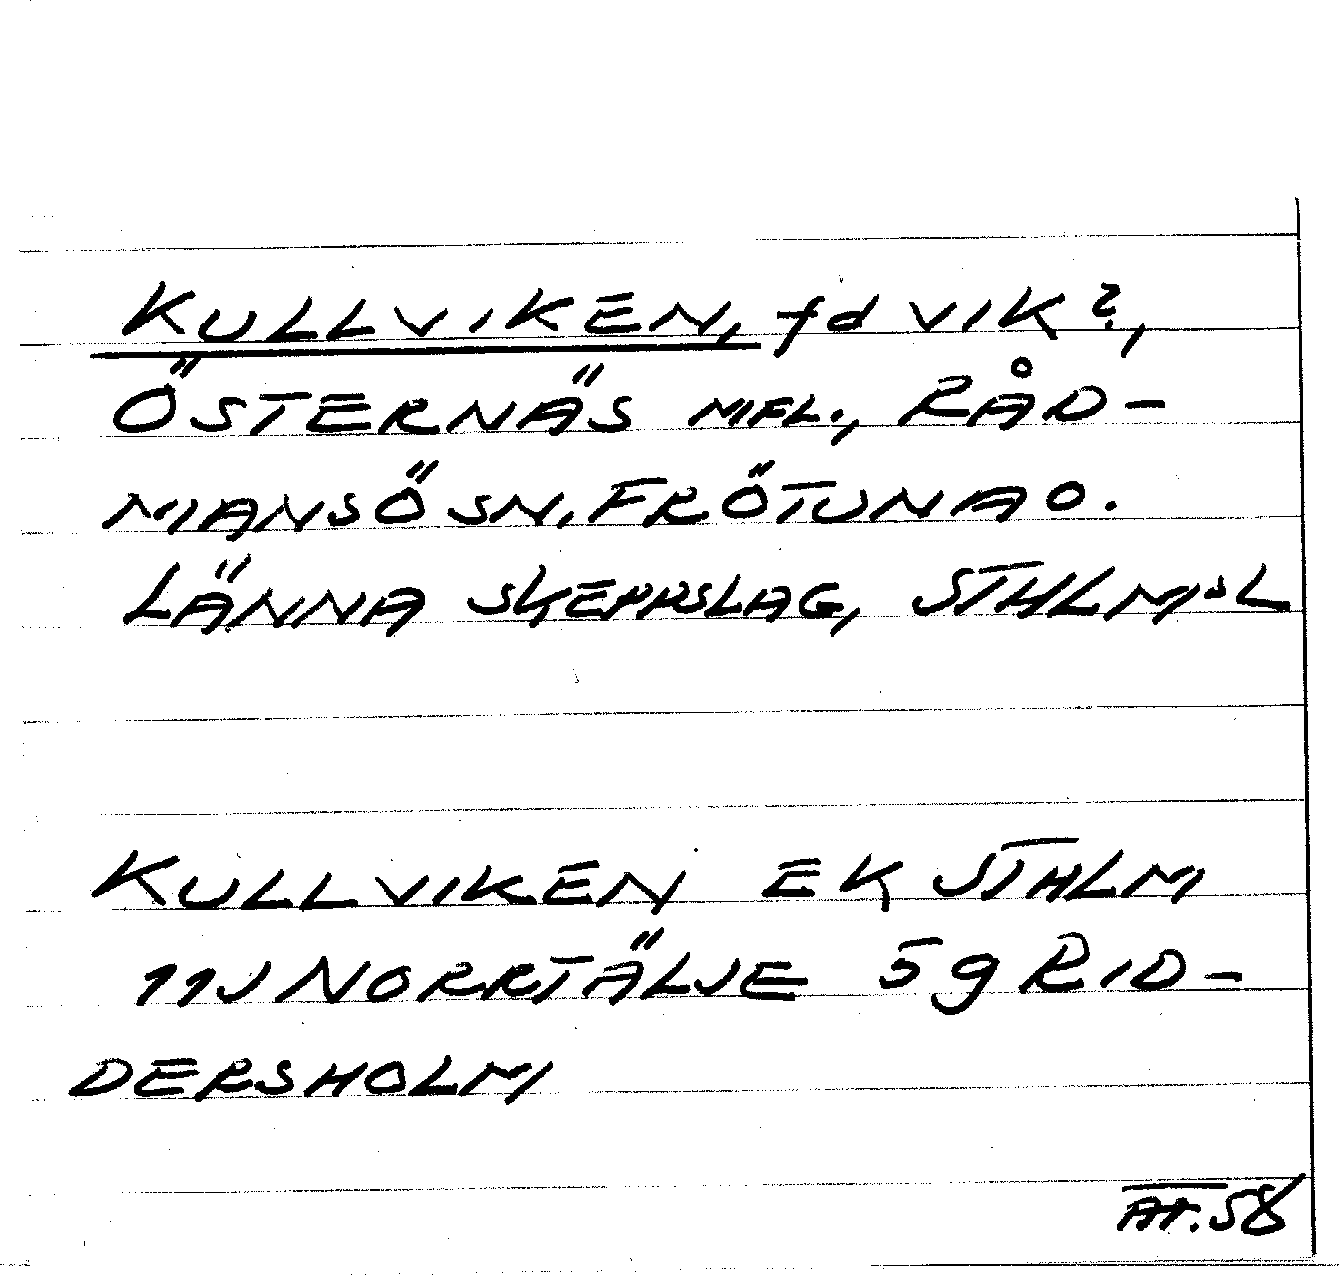 KULLVIKEN, fd VIK?,
ÖSTERNÄS MFL., RÅD-
MANSÖ SN, FRÖTUNA O.
LÄNNA SKEPPSLAG, STHLMSL
KULLVIKEN EK STHLM
11J NORRTÄLJE 5g RID-
DERSHOLM
AT.58